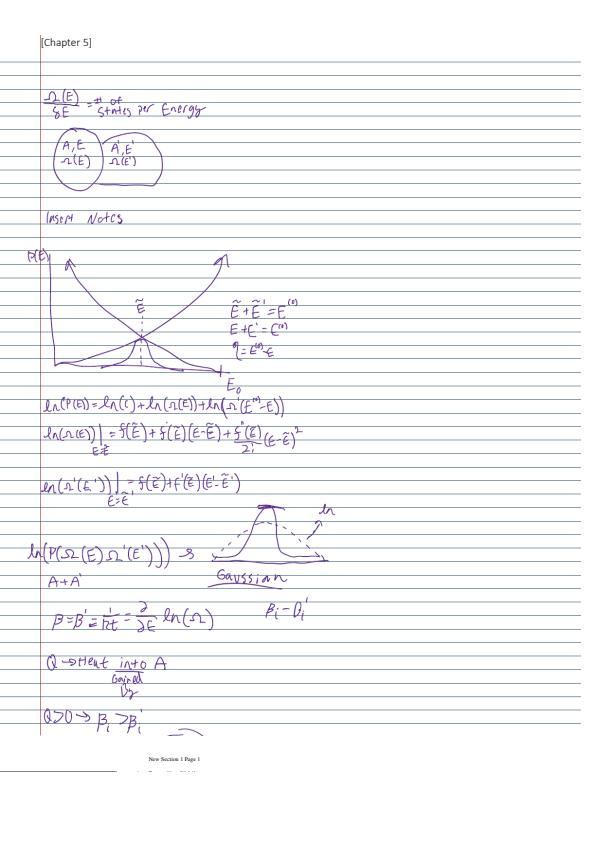 [Chapter 5]
Ω(E)/δE = # of States per Energy
A, E A', E'
Ω(E) Ω(E')
Insert Notes
P(E)
Ẽ
Ẽ + Ẽ' = E^(0)
E + E' = E^(0)
E₀
ln(P(E)) = ln(C) + ln(Ω(E)) + ln(Ω'(E^(0) - E))
ln(Ω(E))|_{E=Ẽ} = f(Ẽ) + f'(Ẽ)(E - Ẽ) + f''(Ẽ)/2! (E - Ẽ)²
ln(Ω'(E'))|_{E'=Ẽ'} = f(Ẽ) + f'(Ẽ)(E' - Ẽ')
ln
ln(P(Ω(E) Ω'(E'))) →
Gaussian
A + A'
β = β' = 1/kt = ∂/∂E ln(Ω)
βᵢ - βᵢ'
Q → Heat into A
Gained
By
Q > 0 → βᵢ > βᵢ'
New Section 1 Page 1